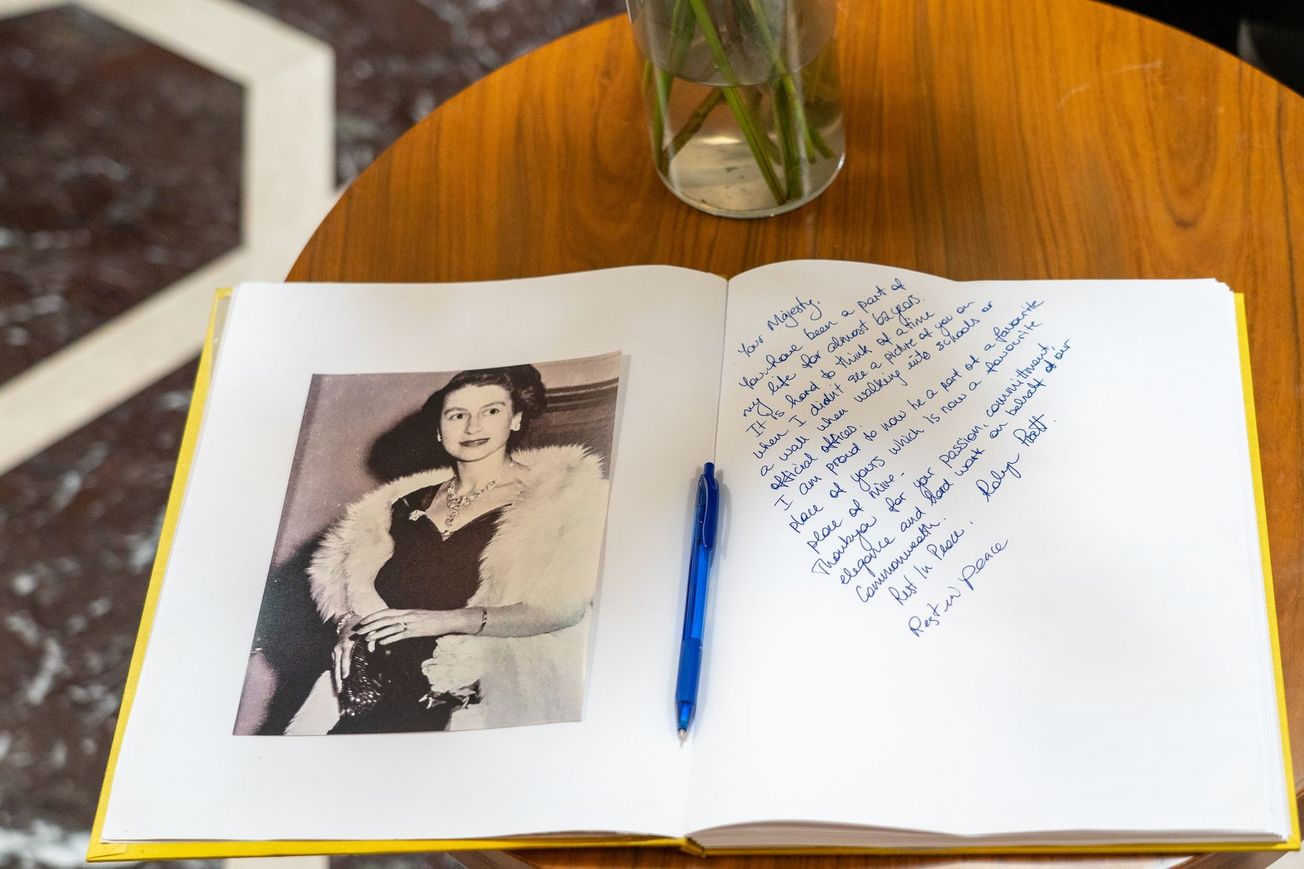 Your Majesty,
You have been a part of
my life for almost 62 years.
It is hard to think of a time
when I didn't see a picture of you on
a wall when walking into schools or
official offices.
I am proud to now be a part of a favourite
place of yours which is now a favourite
place of mine.
Thankyou for your passion, committment,
elegance and hard work on behalf of our
Commonwealth.
Rest In Peace. Robyn Pratt.
Rest in peace